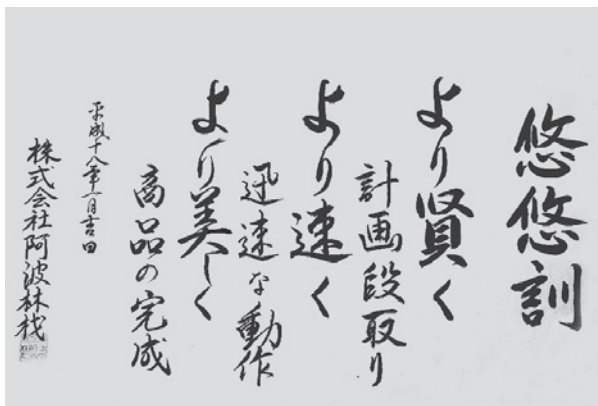 悠悠訓
より賢く
計画段取り
より速く
迅速な動作
より美しく
商品の完成
平成十八年一月吉日
株式会社阿波林材